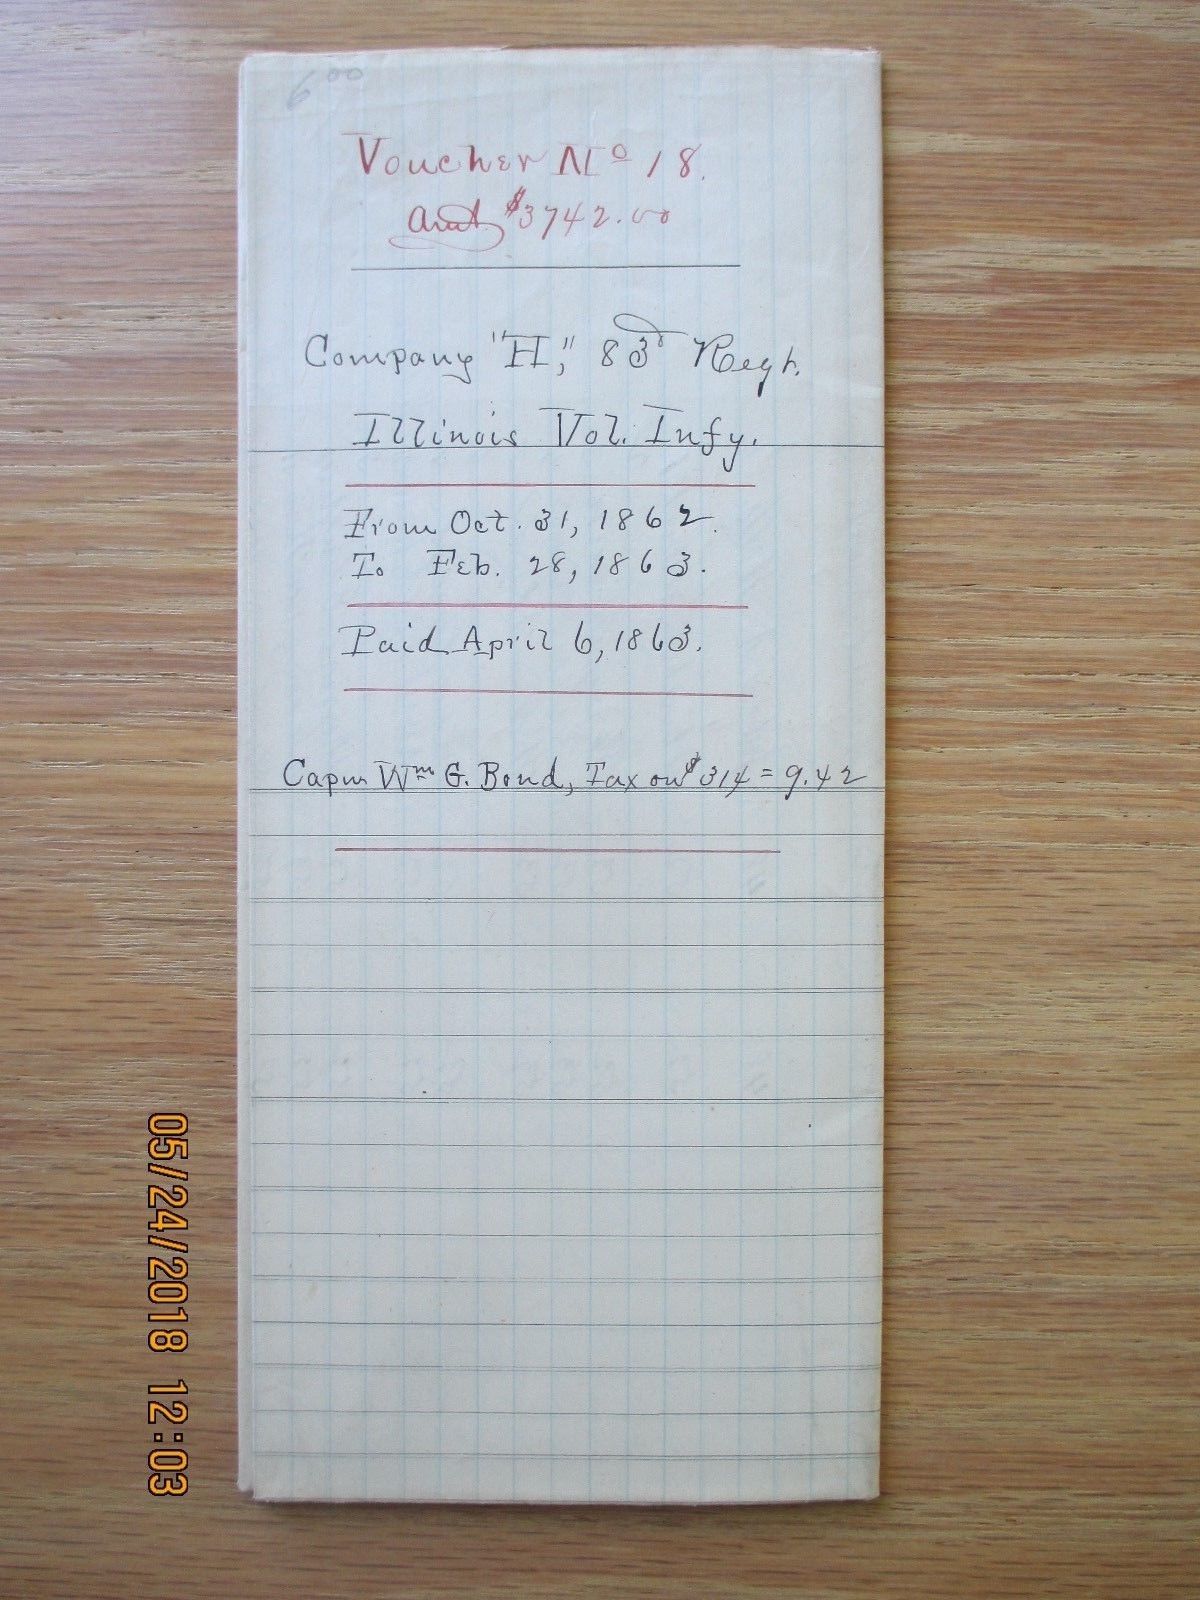 6 00
Voucher No 18.
Amt $3742.00
Company "H," 83d Regt.
Illinois Vol. Infy.
From Oct. 31, 1862.
To Feb. 28, 1863.
Paid April 6, 1863.
Capn Wm G. Bond, Tax on $314 = 9.42
05/24/2018 12:03